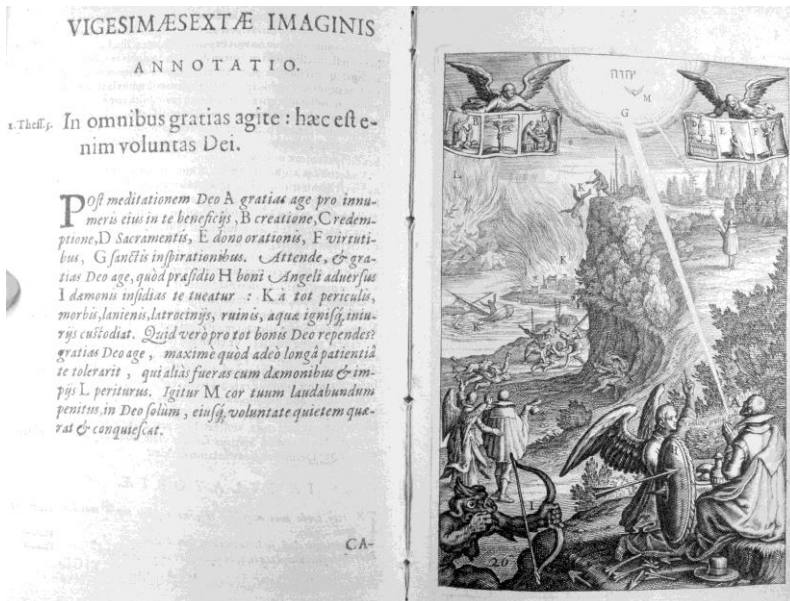 VIGESIMÆSEXTÆ IMAGINIS
ANNOTATIO.
1. Theſſ. 5. In omnibus gratias agite : hæc eſt e-
nim voluntas Dei.
Poſt meditationem Deo A gratias age pro innu-
meris eius in te beneficijs, B creatione, C redem-
ptione, D Sacramentis, E dono orationis, F virtuti-
bus, G ſanctis inſpirationibus. Attende, & gra-
tias Deo age, quòd præſidio H boni Angeli aduerſus
I dæmonis inſidias te tueatur : K à tot periculis,
morbis, lanienis, latrocinijs, ruinis, aquæ igniſq́, iniu-
rijs cuſtodiat. Quid verò pro tot bonis Deo rependes?
gratias Deo age, maximè quòd adeò longâ patientiâ
te tolerarit, qui aliàs fueras cum dæmonibus & im-
pijs L periturus. Igitur M cor tuum laudabundum
penitus, in Deo ſolùm, eiuſq́, voluntate quietem quæ-
rat & conquieſcat.
CA-
יהוה
M
G
E F
L
K
K
26